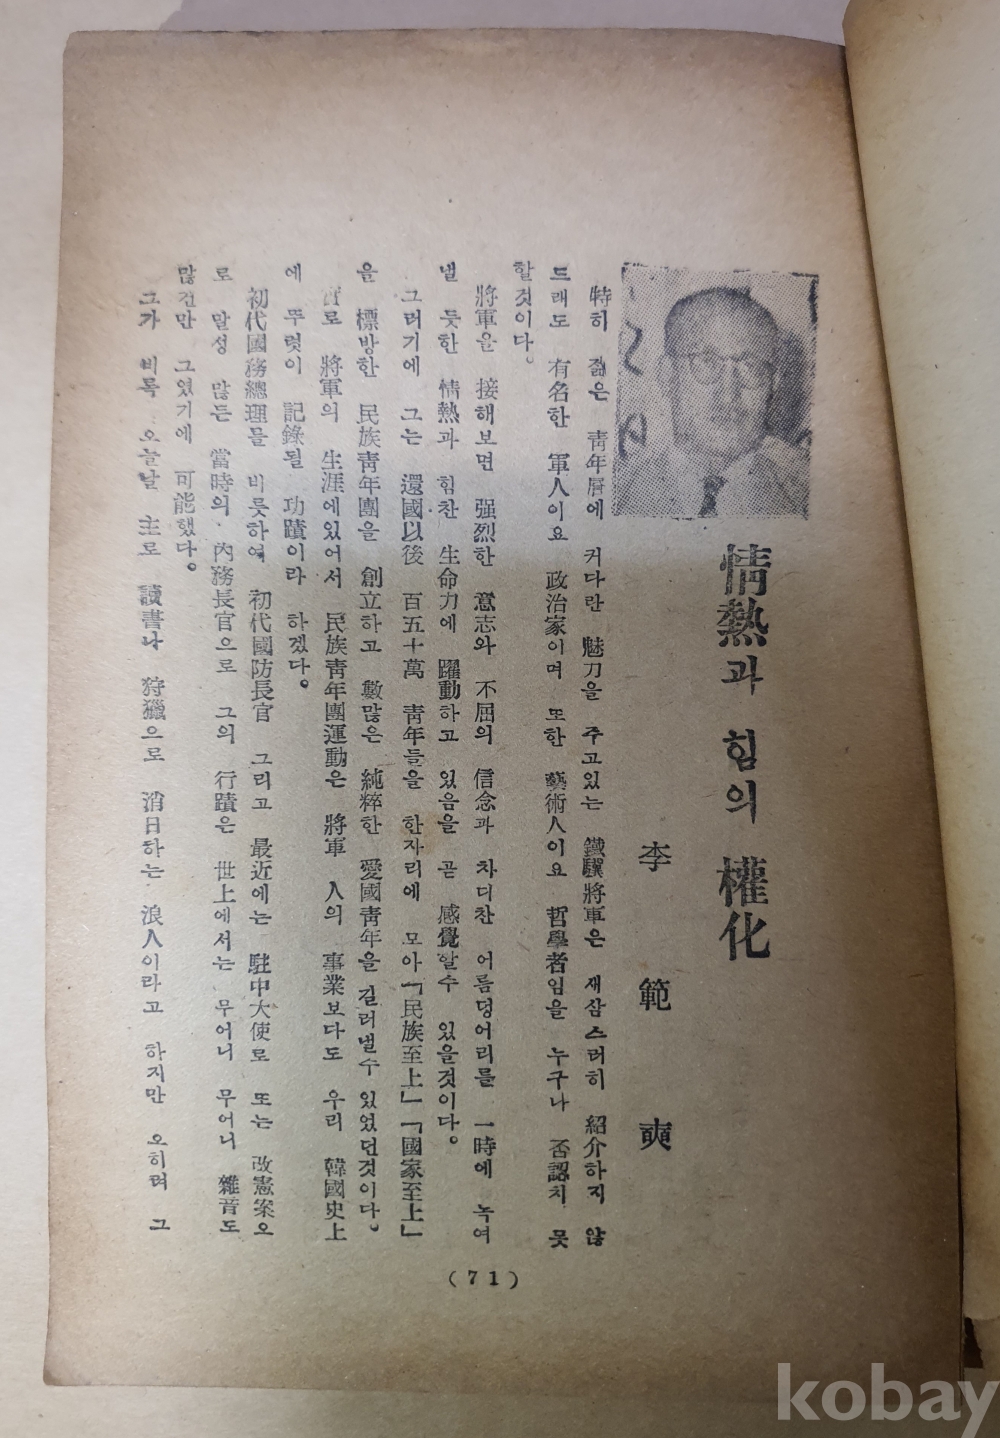 情熱과 힘의 權化
李範奭
特히 젊은 靑年層에 커다란 魅力을 주고있는 鐵驥將軍은 재삼스러히 紹介하지 않
드래도 有名한 軍人이요 政治家이며 또한 藝術人이요 哲學者임을 누구나 否認치 못
할것이다。
將軍을 接해보면 强烈한 意志와 不屈의 信念과 차디찬 어름덩어리를 一時에 녹여
낼 듯한 情熱과 힘찬 生命力에 躍動하고 있음을 곧 感覺할수 있을것이다。
그러기에 그는 還國以後 百五十萬 靑年들을 한자리에 모아「民族至上」「國家至上」
을 標방한 民族靑年團을 創立하고 數많은 純粹한 愛國靑年을 길러낼수 있었던것이다。
實로 將軍의 生涯에있어서 民族靑年團運動은 將軍 人의 事業보다도 우리 韓國史上
에 뚜렷이 記錄될 功蹟이라 하겠다。
初代國務總理를 비롯하여 初代國防長官 그리고 最近에는 駐中大使로 또는 改憲案으
로 말성 많든 當時의 內務長官으로 그의 行蹟은 世上에서는 무어니 무어니 雜音도
많건만 그였기에 可能했다。
그가 비록 오늘날 主로 讀書나 狩獵으로 消日하는 浪人이라고 하지만 오히려 그
(71)
kobay